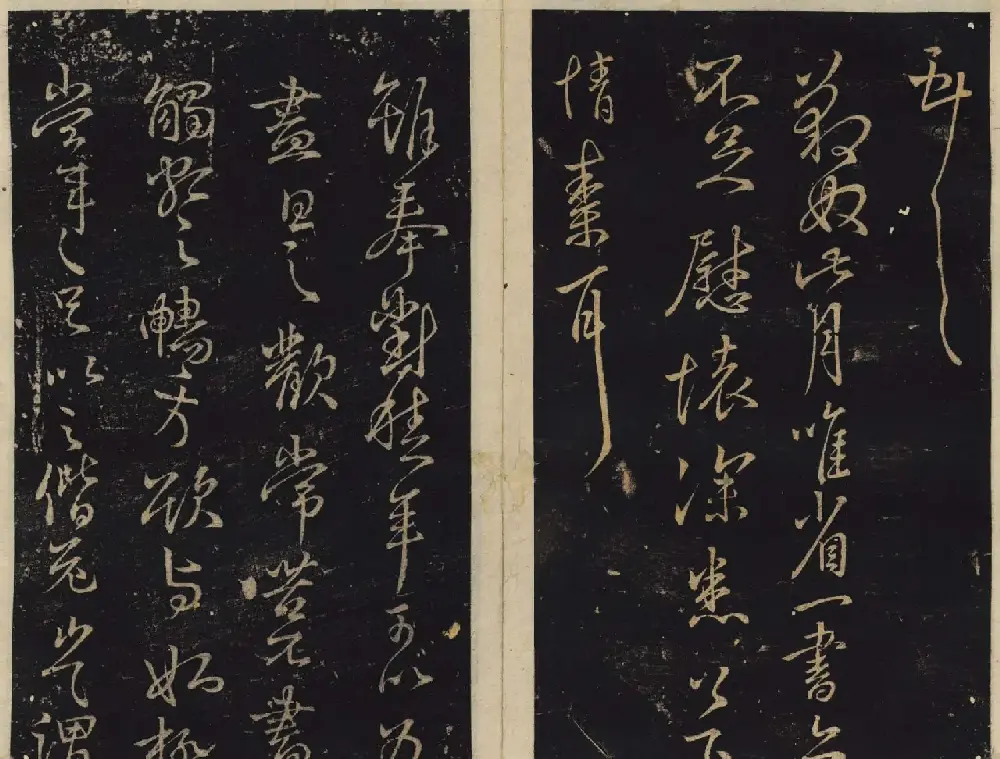 豹奴此月唯省一書亦
不足慰懷深患以
情素耳
雖奉對積年可以為
盡日之歡常苦不盡
觸類之暢方欲与姊極
當年之足以之偕老豈謂